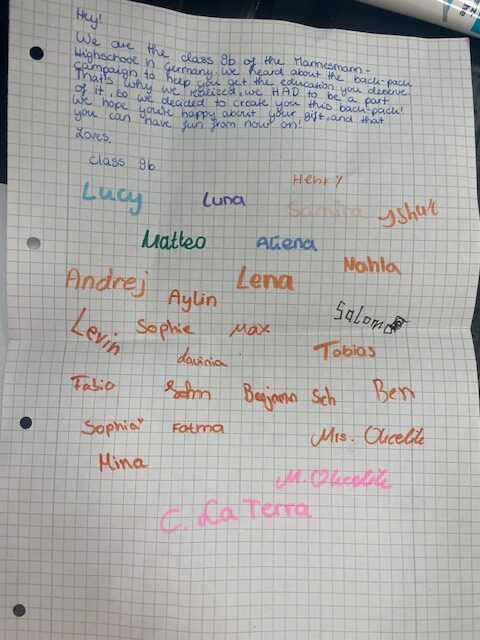 Hey!
We are the class 9b of the Mannesmann-
Highschool in Germany. We heard about the back-pack
campaign to help you get the education you deserve.
That's why we realized, we HAD to be a part
of it, so we decided to create you this back-pack!
We hope you're happy about your gift, and that
you can have fun from now on!
Loves,
class 9b
Henry
Lucy Luna Samira
Matteo Aliena
Nahla
Andrej Lena
Aylin
Salome
Levin Sophie Max
davinia Tobias
Fabio Benjamin Sch Ben
Sophia Fatma
Mrs.
Mina
M.
C. La Terra